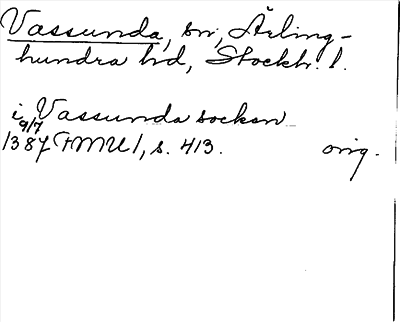 Vassunda, sn, Ärling-
hundra hd, Stockh. l.
i Vassunda socken
9/7
1387 FMU 1, s. 413. orig.